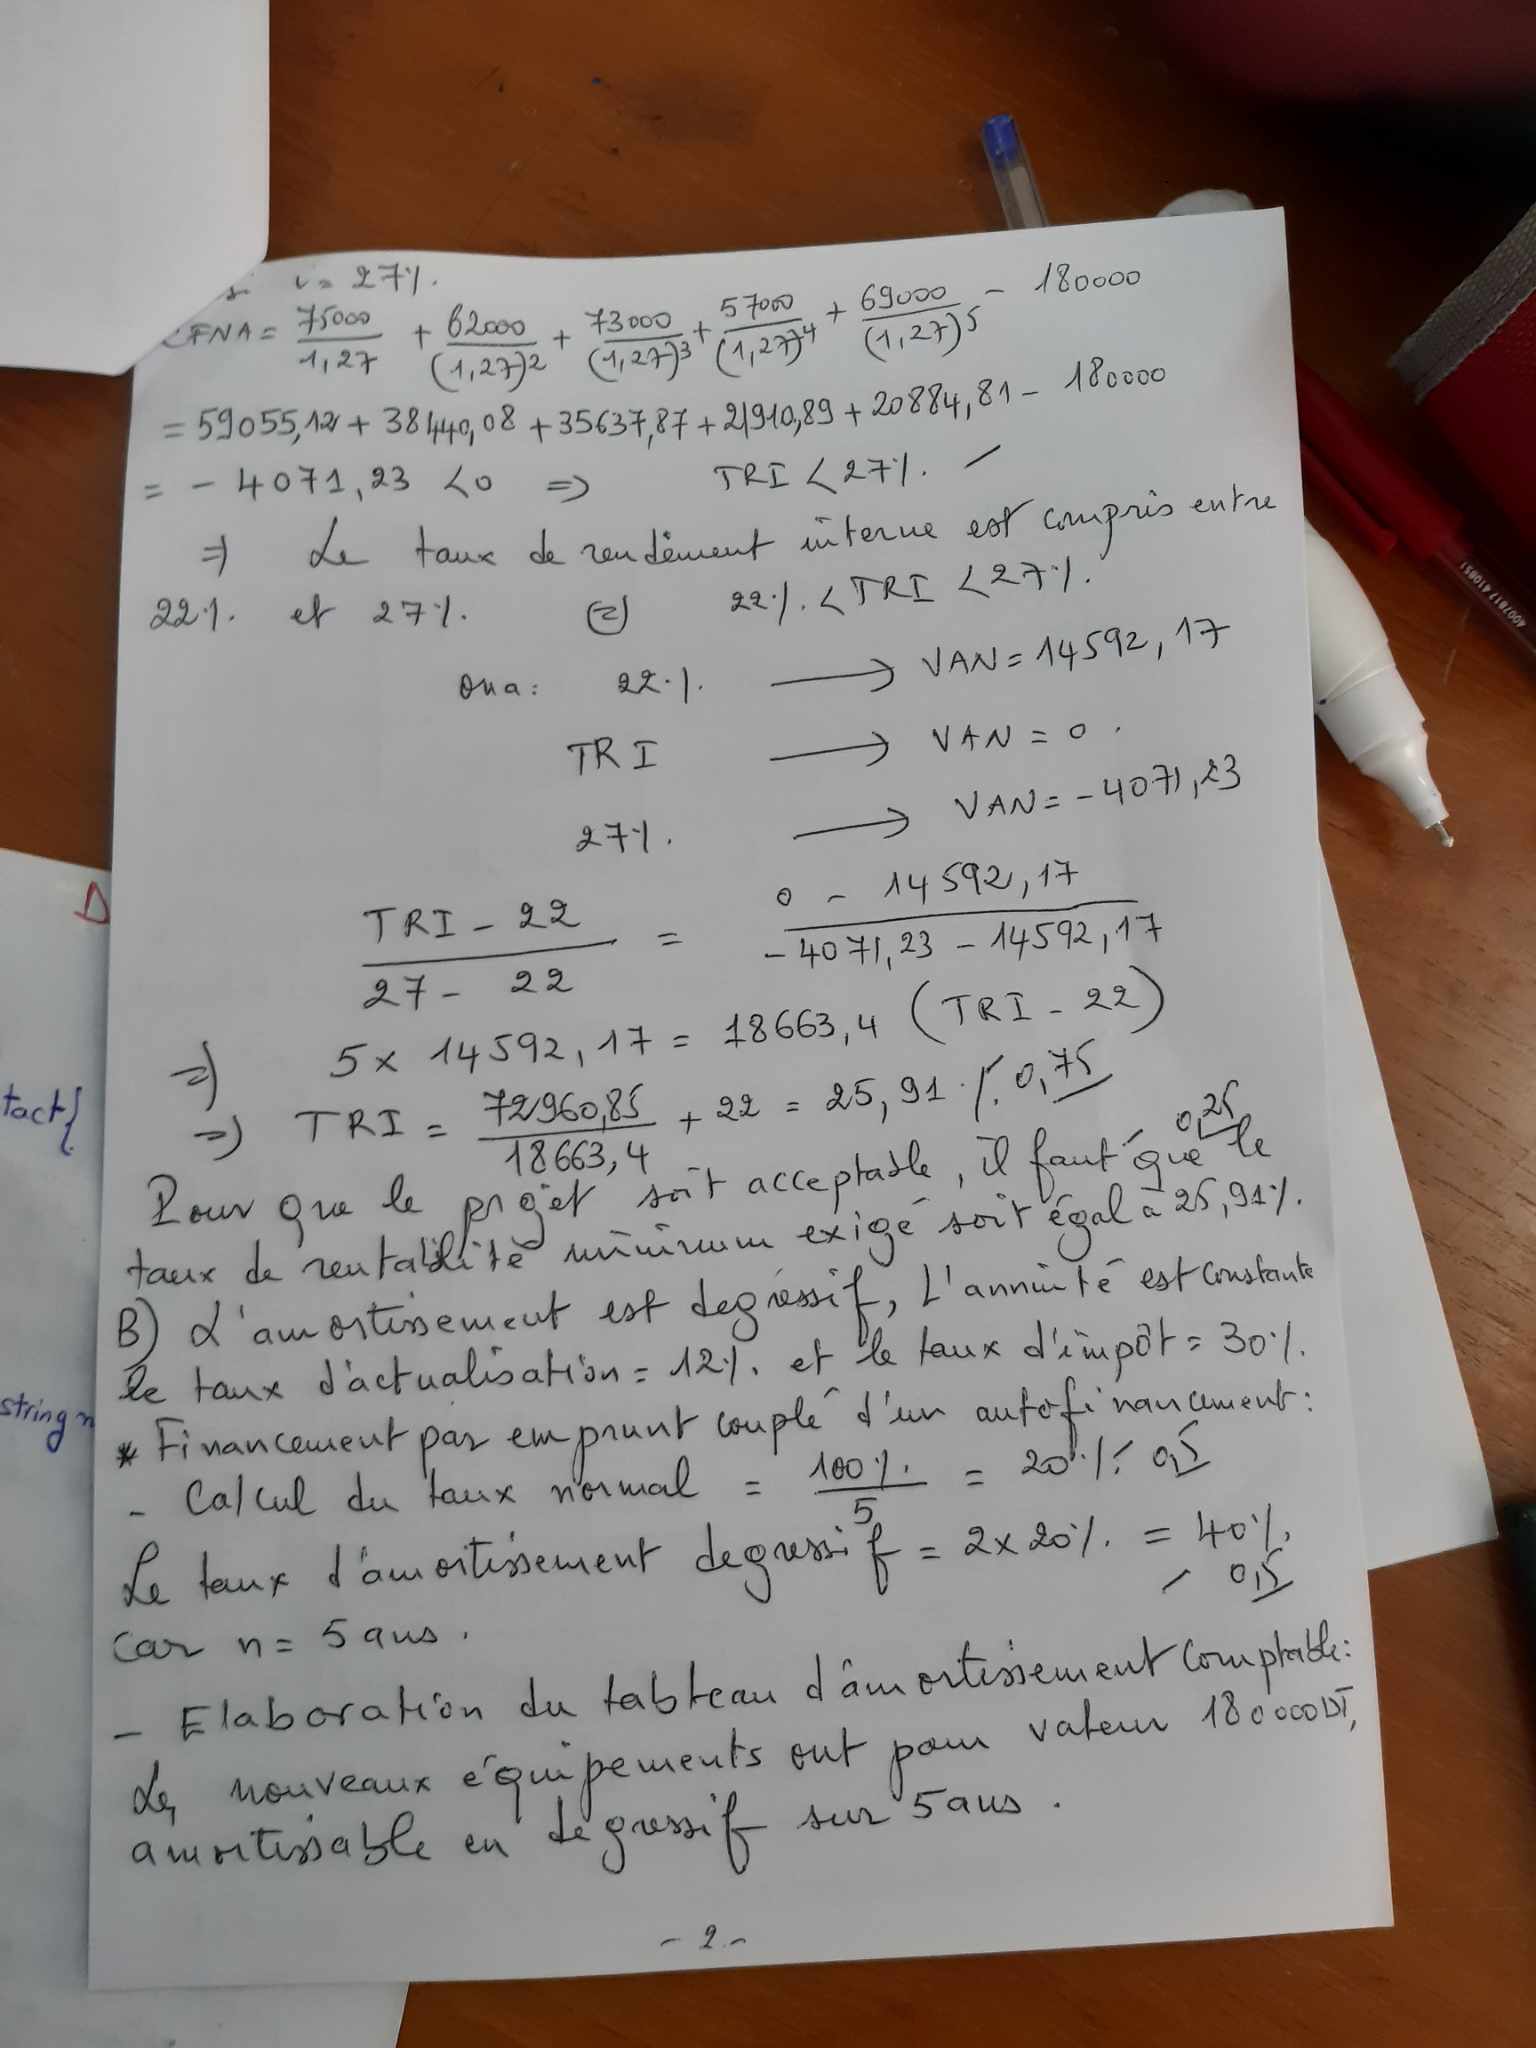 i = 27%.
CFNA = 75000/1,27 + 62000/(1,27)² + 73000/(1,27)³ + 57000/(1,27)⁴ + 69000/(1,27)⁵ - 180000
= 59055,12 + 38440,08 + 35637,87 + 21910,89 + 20884,81 - 180000
= - 4071,23 < 0 => TRI < 27%.
=> Le taux de rendement interne est compris entre
22%. et 27%. (=) 22%. < TRI < 27%.
on a : 22%. → VAN = 14592,17
TRI → VAN = 0.
27%. → VAN = - 4071,23
(TRI - 22)/(27 - 22) = (0 - 14592,17)/(- 4071,23 - 14592,17)
=> 5 x 14592,17 = 18663,4 (TRI - 22)
=> TRI = 72960,85/18663,4 + 22 = 25,91%. 0,75
0,25
Pour que le projet soit acceptable, il faut que le
taux de rentabilité minimum exigé soit égal à 25,91%.
B) L'amortissement est degréssif, L'annuité est constante
le taux d'actualisation = 12%. et le taux d'impôt = 30%.
* Financement par emprunt couplé d'un autofinancement :
- Calcul du taux normal = 100%./5 = 20%. 0,5
Le taux d'amortissement degressif = 2 x 20%. = 40%.
- 0,5
car n = 5 ans.
- Elaboration du tableau d'amortissement comptable :
Les nouveaux équipements ont pour valeur 180000DT,
amortissable en degressif sur 5 ans.
- 2 -
D
tact{
string n
4007817 410851